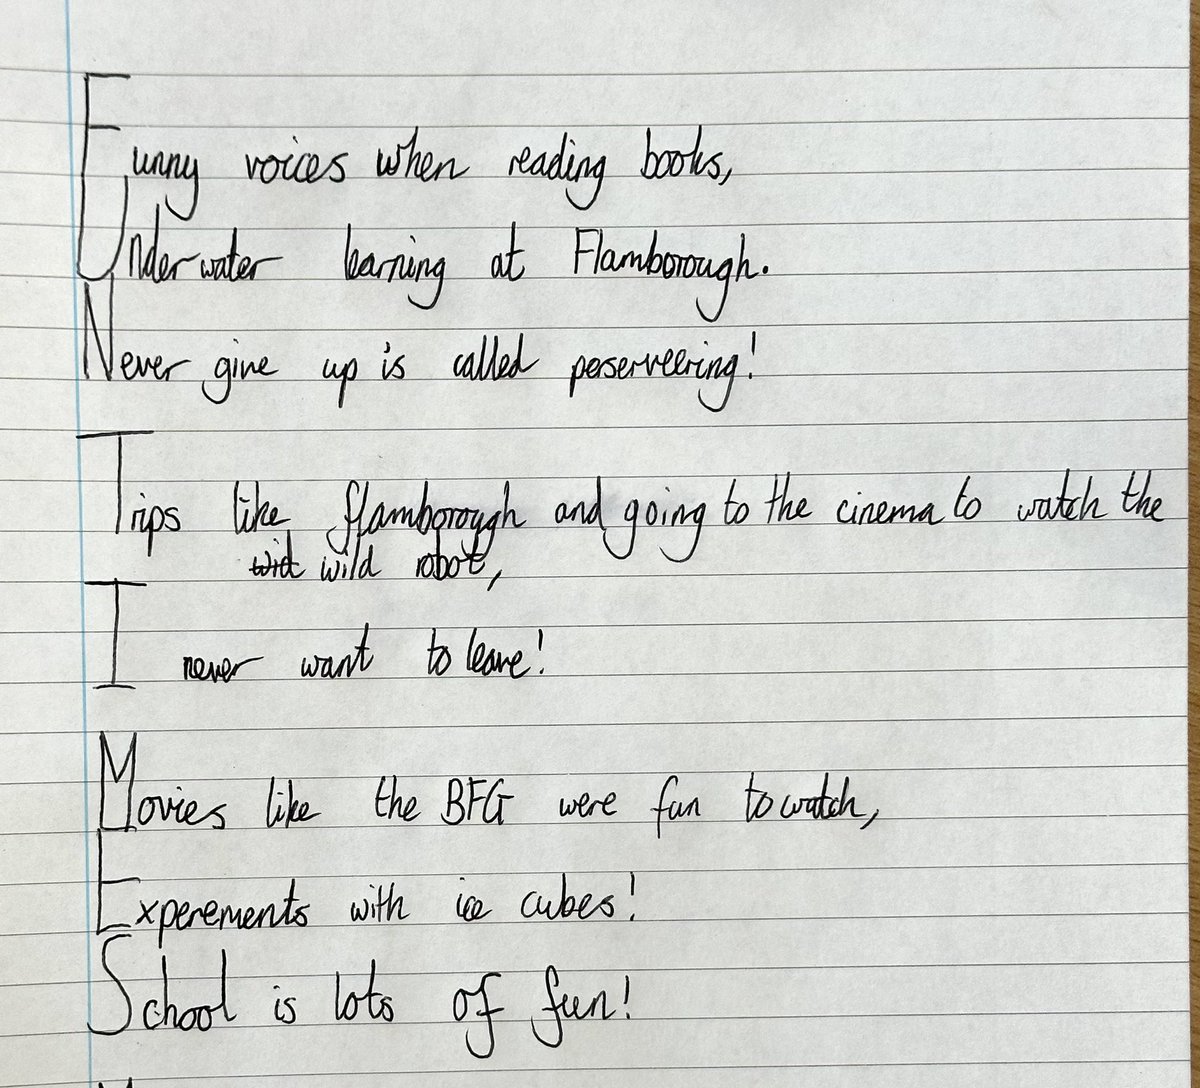 Funny voices when reading books,
Underwater learning at Flamborough.
Never give up is called perserveering!
Trips like flamborough and going to the cinema to watch the
wild robot,
I never want to leave!
Movies like the BFG were fun to watch,
Experements with ice cubes!
School is lots of fun!